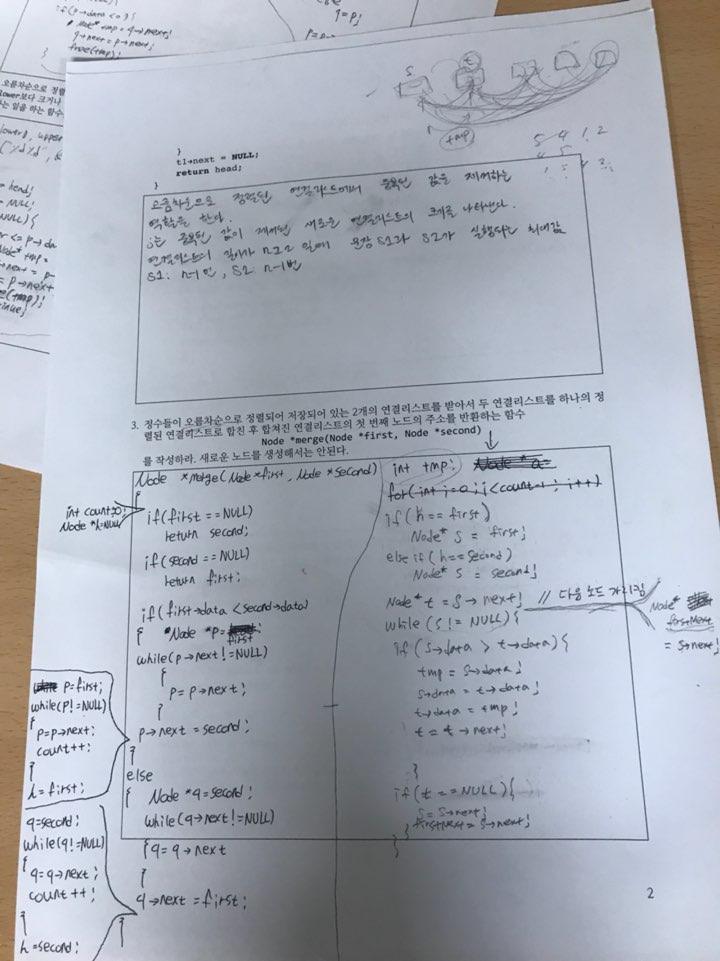 if(p→data<0){
Node* tmp = q→next;
q→next = p→next;
free(tmp);
}
q=p;
오름차순으로 정렬
lower보다 크거나
는 일을 하는 함수
= NULL;
(NULL){
continue;
S
t
tmp
5 4 1 2
}
t1→next = NULL;
return head;
}
오름차순으로 정렬된 연결리스트에서 중복된 값을 제거하는
역할을 한다.
j는 중복된 값이 제거된 새로운 연결리스트의 크기를 나타낸다.
연결리스트의 길이가 n≥2 일때 문장 S1과 S2가 실행되는 최대값
S1: n-1번, S2: n-1번
3. 정수들이 오름차순으로 정렬되어 저장되어 있는 2개의 연결리스트를 받아서 두 연결리스트를 하나의 정
렬된 연결리스트로 합친 후 합쳐진 연결리스트의 첫 번째 노드의 주소를 반환하는 함수
Node *merge(Node *first, Node *second)
를 작성하라. 새로운 노드를 생성해서는 안된다.
Node *merge(Node *first, Node *second)
{
int count=0;
Node *h=NULL
if(first==NULL)
return second;
if(second==NULL)
return first;
if(first→data<second→data)
{ *Node *p=first;
while(p→next!=NULL)
{
p=p→next;
}
p→next=second;
}
p=first;
while(p!=NULL)
{
p=p→next;
count++;
}
h=first;
else
{ Node *q=second;
while(q→next!=NULL)
{q=q→next
}
q→next=first;
}
q=second;
while(q!=NULL)
{
q=q→next;
count++;
}
h=second;
int tmp; Node *a=
for(int i=0; i<count-1; i++)
if(h==first)
Node* s = first;
else if(h==second)
Node* s = second;
Node* t = s→next; // 다음 노드 가리킴
while(s!=NULL){
if(s→data > t→data){
tmp = s→data;
s→data = t→data;
t→data = tmp;
t = t→next;
}
if(t==NULL){
s=s→next;
} firstNext = s→next;
}
Node*
firstNext
= s→next;
2